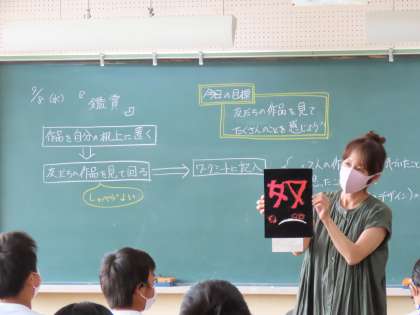 9/8 (水) 『鑑賞』
今日の目標
友だちの作品を見て
たくさんのことを感じよう
作品を自分の机上に置く
友だちの作品を見て回る
ワークシートに記入
2人の作
デザイン)の
奴